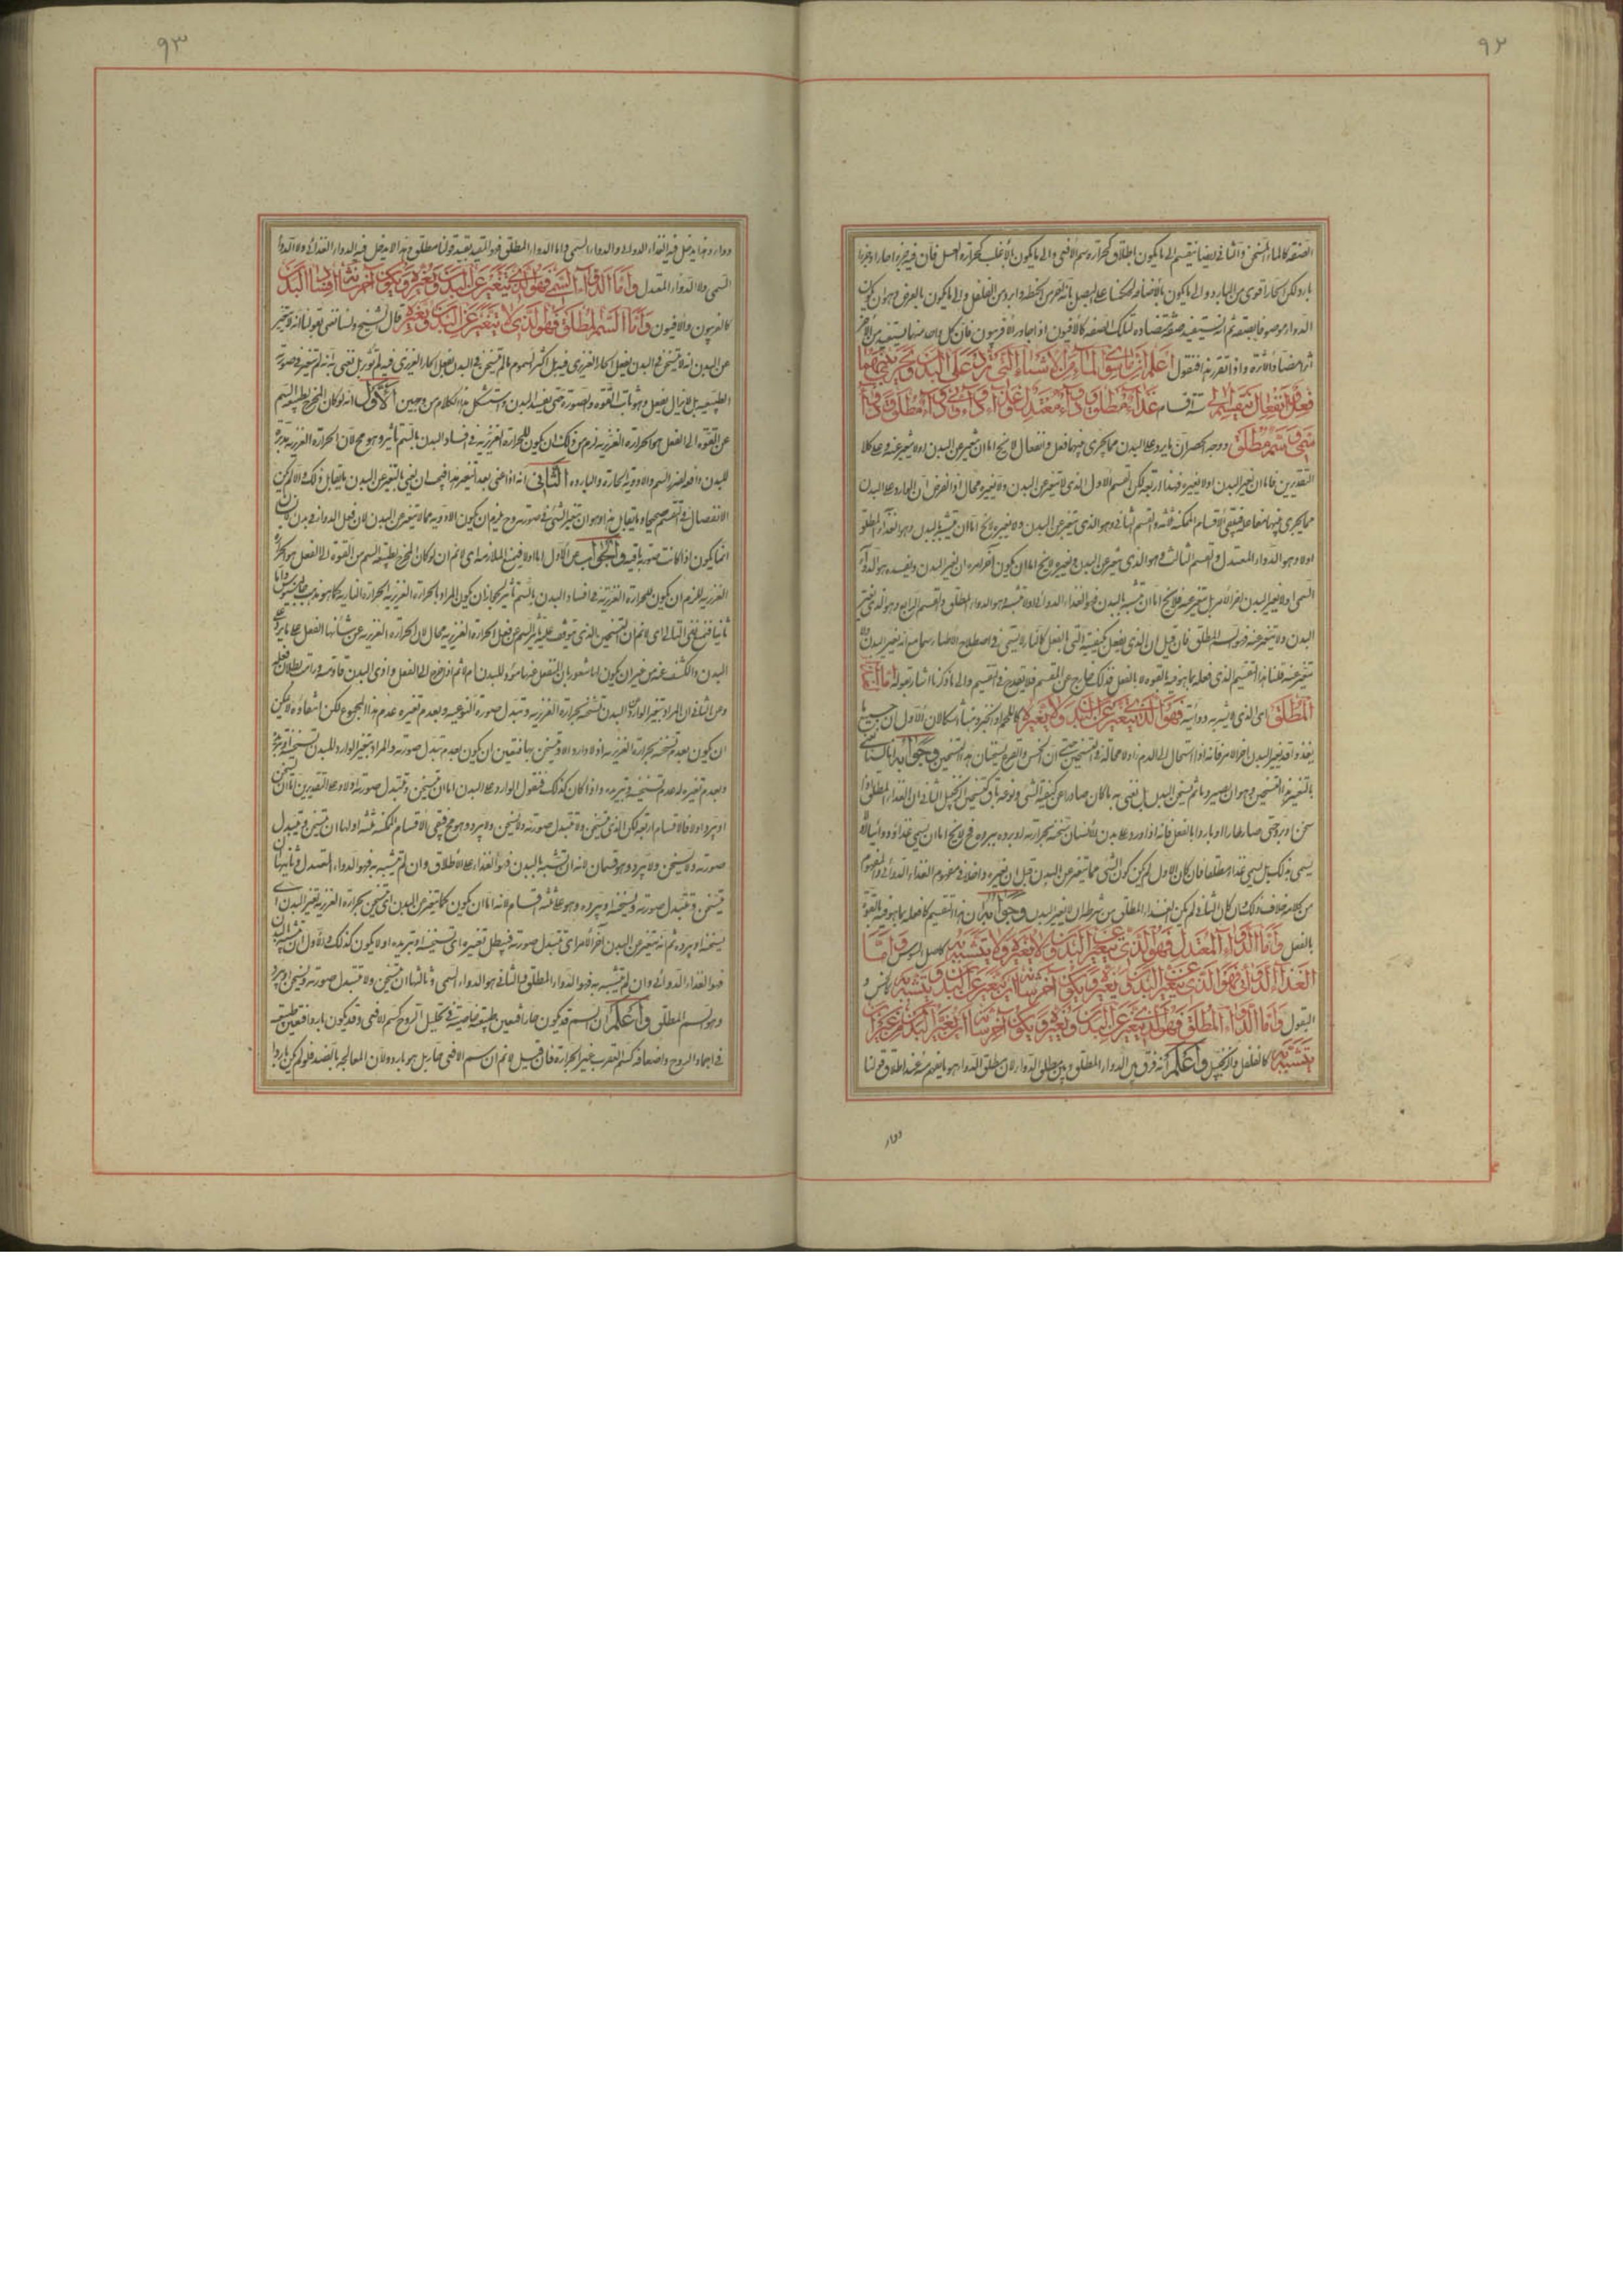 ٩٢
الصفة كالماء المسخن والثانى ايضا ينقسم الى ما يكون باطلاق كحرارة سم الافعى والى ما يكون بالاغلب كحرارة العسل فان فيه جزءا حارا وجزءا
باردا لكن الحار اقوى من البارد والى ما يكون بالاضافة والى ما يكون بالعرض وهو ان يكون
الدواء موصوفا بصفة ثم انه يستفيد صفة مضادة لتلك الصفة كالافيون اذا جاور الافربيون فان كل واحد منهما يستفيد من الآخر
واذا تقرر هذا فنقول اعلم ان ما سوى الماء من الاشياء التى ترد على البدن ويجرى بينهما
فعل وانفعال تنقسم الى ستة اقسام غذاء مطلق ودواء معتدل وغذاء دوائى ودواء مطلق ودواء
سمى وسم مطلق ووجه الحصر ان ما يرد على البدن مما يجرى فيهما فعل وانفعال لا يخ اما ان يتغير عن البدن او لا يتغير عنه وعلى كلا
التقديرين فاما ان يغير البدن او لا يغيره فهذا اربعة لكن القسم الاول الذى لا يتغير عن البدن ولا يغيره محال اذ الفرض ان الوارد على البدن
مما يجرى فيهما فبقى الاقسام الممكنة ثلثة والقسم الثانى وهو الذى يتغير عن البدن ولا يغيره لا يخ اما ان يتشبه بالبدن وهو الغذاء المطلق
اولا وهو الدواء المعتدل والقسم الثالث وهو الذى يتغير عن البدن ويغيره لا يخ اما ان يكون آخر امره ان يغير البدن ويفسده وهو الدواء
السمى او لا يغير البدن آخر الامر بل يتغير عنه فلا يخ اما ان يتشبه بالبدن فهو الغذاء الدوائى او لا يتشبه وهو الدواء المطلق والقسم الرابع وهو الذى يغير
البدن ولا يتغير عنه فهو السم المطلق فان قيل ان الذى يفعل بكيفيته التى بالفعل كالنار لا يسمى فى اصطلاح الاطباء سما مع انه يغير البدن ولا
يتغير عنه قلنا هذا التقسيم لذى فعله بما هو فيه بالقوة لا بالفعل فذلك خارج عن المقسم فلا يقدح فى التقسيم والى ما ذكرنا اشار بقوله اما الغذاء
المطلق اى الذى لا يشوبه دوائية فهو الذى يتغير عن البدن ولا يغيره كاللحم والخبز وهنا اشكالان الاول ان جميع ما
يغذو قد يغير البدن آخر الامر فانه اذا استحال الى الدم زاد لا محالة فى التسخين وجوابه انا لا نعنى
بالتغير هذا التسخين وهو ان يصير دما ثم يسخن البدن بل نعنى به ما كان صادرا عن كيفية الشئ ونوعه باق كتسخين الزنجبيل الثانى ان الغذاء المطلق اذا
سخن او برد حتى صار حارا او باردا بالفعل فانه اذا ورد على بدن الانسان سخنه بحرارته او برده ببرده فح لا يخ اما ان يسمى غذاء دوائيا او لا
يسمى بذلك بل يسمى غذاء مطلقا فان كان الاول لم يكن كون الشئ مما يتغير عن البدن قبل ان يغيره داخلا فى مفهوم الغذاء الدوائى والمفهوم
من كلامه خلاف ذلك وان كان الثانى لم يكن الغذاء المطلق من شرطه ان لا يغير البدن وجوابه ان هذا تقسيم لما فعله بما هو فيه بالقوة
بالفعل واما الدواء المعتدل فهو الذى يتغير عن البدن ولا يغيره ولا يتشبه به كاصل السوس واما
الغذاء الدوائى فهو الذى يتغير عن البدن ويغيره ويكون آخر شانه ان يتغير عن البدن ويتشبه به كالخس و
البقول واما الدواء المطلق فهو الذى يتغير عن البدن ويغيره ويكون آخر شانه ان يتغير عن البدن من غير ان
يتشبه به كالفلفل والزنجبيل واعلم انه فرق بين الدواء المطلق وبين مطلق الدواء لان مطلق الدواء هو ما يفهم منه عند اطلاق قولنا
دواء
٩٣
دواء وهذا يدخل فيه الغذاء الدوائى والدواء السمى واما الدواء المطلق فهو المقيد بقيد قولنا مطلق وهذا لا يدخل فيه الدواء الغذائى ولا الدواء
السمى ولا الدواء المعتدل واما الدواء السمى فهو الذى يتغير عن البدن ويغيره ويكون آخر شانه افساد البدن
كالفربيون والافيون واما السم المطلق فهو الذى لا يتغير عن البدن ويغيره قال الشيخ ولسنا نعنى بقولنا انه لا يتغير
عن البدن انه لا يسخن فى البدن بفعل الحار الغريزى فيه بل اكثر السموم ما لم يسخن فى البدن بفعل الحار الغريزى فيه لم يؤثر بل نعنى به انه لم يتغير فى صورته
الطبيعية بل لا يزال يفعل وهو ثابت القوة والصورة حتى يفسد البدن واستشكل هذا الكلام من وجهين الاول انه لو كان المخرج لطبيعة السم
من القوة الى الفعل هو الحرارة الغريزية لزم من ذلك ان يكون للحرارة الغريزية فى افساد البدن بالسم تاثير وهو مح لان الحرارة الغريزية
للبدن دافعة لضرر السم والادوية الحارة والباردة الثانى انه اذا عنى بعدم التغير هذا فيجب ان يعنى بالتغير عن البدن ما يقابل ذلك والا لم يكن
الانفصال فى التقسيم صحيحا وما يقابل هذا هو ان يتغير الشئ فى صورته وح يلزم ان يكون الادوية مما لا يتغير عن البدن لان فعل الدواء فى بدن الانسان
انما يكون اذا كانت صورته باقية والجواب عن الاول اما اولا فبمنع الملازمة اى لا نم ان لو كان المخرج لطبيعة السم من القوة الى الفعل هو الحرارة
الغريزية يلزم ان يكون للحرارة الغريزية فى افساد البدن بالسم تاثير لجواز ان يكون المراد بالحرارة الغريزية الحرارة النارية كما هو مذهب جالينوس واما
ثانيا فبمنع نفى التالى اى لا نم ان التسخين الذى يتوقف عليه تاثير السم عن فعل الحرارة الغريزية محال لان الحرارة الغريزية من شانها الفعل على ما يرد على
البدن والكشف عنه من غير ان يكون لها شعور بان المنفعل عنها مؤذ للبدن ام لا ثم اذا خرج الى الفعل واذى البدن قاومته ورامت بطلان فعله
وعن الثانى ان المراد بتغير الوارد عن البدن تسخنه بحرارة الغريزية وتبدل صورته النوعية وبعدم تغيره عدم هذا المجموع لكن انتفاؤه لا يمكن
ان يكون بعدم تسخنه بحرارة الغريزية اذ لا وارد الا ويسخن بها فتعين ان يكون بعدم تبدل صورته والمراد بتغيير الوارد للبدن تسخينه او تبريده
وبعدم تغييره له عدم تسخينه وتبريده واذا كان كذلك فنقول الوارد على البدن اما ان يتسخن ويتبدل صورته اولا وعلى التقديرين اما ان يسخن
او يبرد اولا فالاقسام اربعة لكن الذى يتسخن ولا يتبدل صورته ولا يسخن ولا يبرد وهو مح فبقى الاقسام الممكنة ثلثة اولها ان يتسخن ويتبدل
صورته ولا يسخن ولا يبرد وهو قسمان لانه ان تشبه بالبدن فهو الغذاء على الاطلاق وان لم يتشبه به فهو الدواء المعتدل وثانيها ان
يتسخن ويتبدل صورته ويسخنه او يبرده وهو على ثلثة اقسام لانه اما ان يكون كما يتغير عن البدن اى يتسخن بحرارته الغريزية يغير البدن اى
يسخنه او يبرده ثم انه يتغير عن البدن آخر الامر اى يتبدل صورته فيبطل تغييره اى تسخينه او تبريده او لا يكون كذلك والاول ان تشبه بالبدن
فهو الغذاء الدوائى وان لم يتشبه به فهو الدواء المطلق والثانى هو الدواء السمى وثالثها ان يتسخن ولا يتبدل صورته ويسخن او يبرد
وهو السم المطلق واعلم ان السم قد يكون حارا فتعين طبيعته خاصيته فى تحليل الروح كسم الافعى وقد يكون باردا فتعين طبيعته
فى اجماد الروح واضعافه كسم العقرب غير الجرارة فان قيل لا نم ان سم الافعى حار بل هو بارد ولان المعالجة بالضد فلو لم يكن باردا